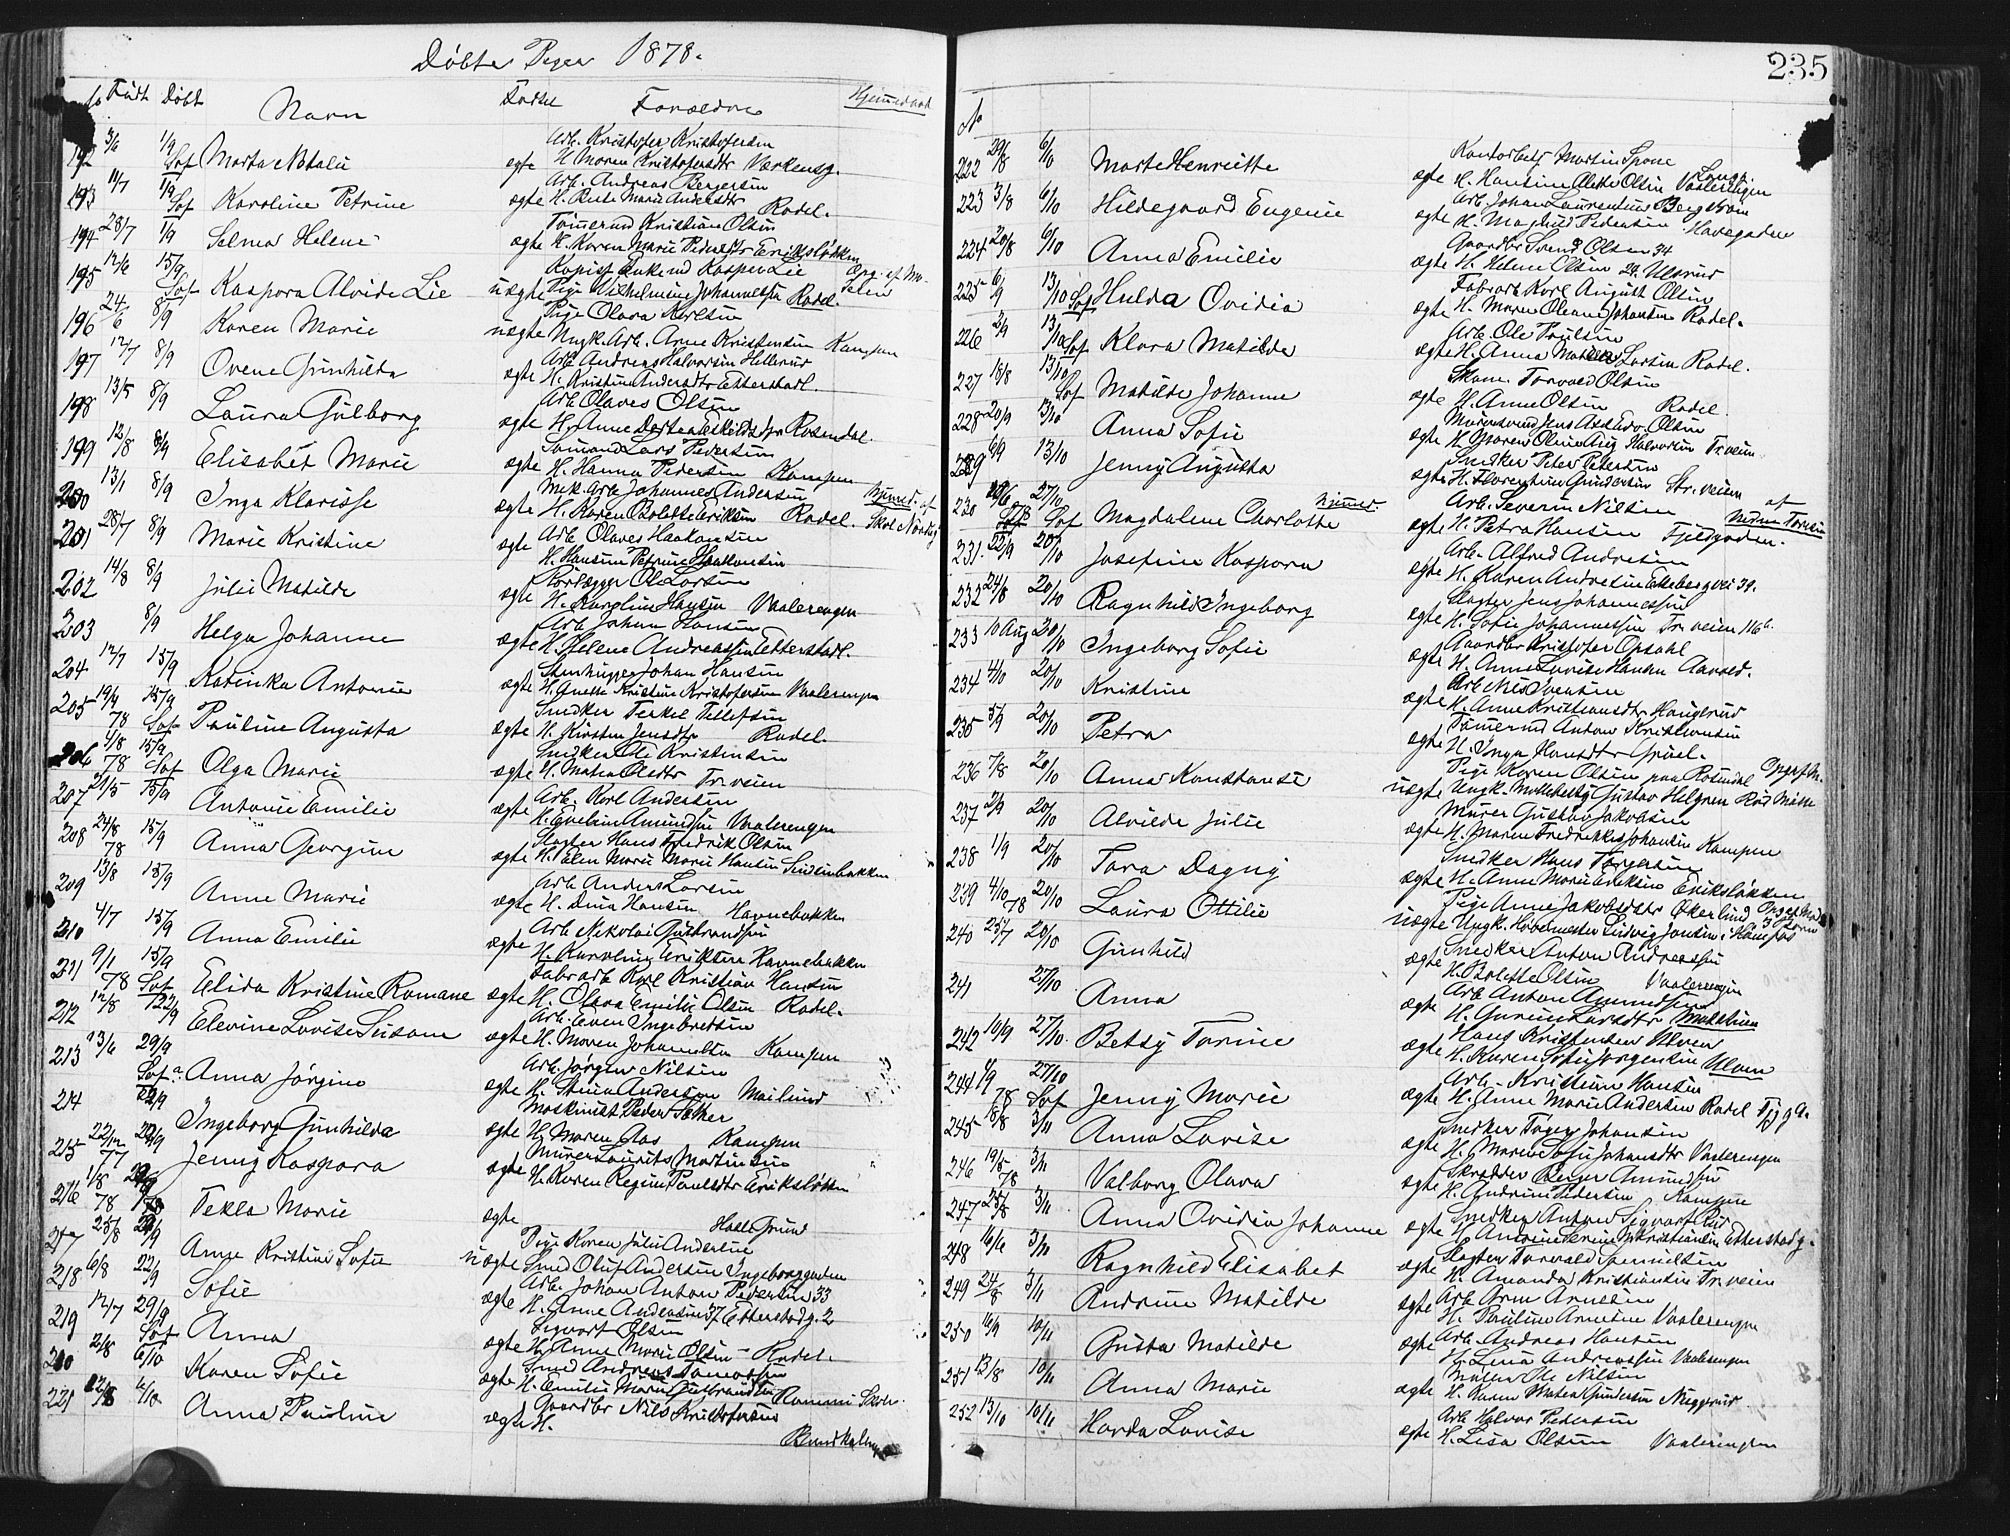 Døbte Piger 1878.
No Født Døbt Navn Fødsel Forældre Hjemmedøbt
192 3/6 1/9 Sof Marta Natalie ægte Arb. Kristofer Kristofersen
H. Maren Kristofersdtr
193 11/7 1/9 Sof Karoline Petrine ægte Arb. Andreas Bergersen
H. Marie Andersdtr Rodel.
194 28/7 1/9 Selma Helene ægte Tømermd Kristian Olsen
H. Karen Marie Pedersdtr Eriksløkken
195 12/6 15/9 Sof Kaspara Alvide Lie uægte Kopist Enkemd Kasper Lie
Pige Vilhelmine Johannessen Rodel.
196 24/6 8/9 Karen Marie uægte Pige Olava Karlsen
Ungk. Arb. Arne Kristensen Kampen
197 12/7 8/9 Ovene Gunhilda ægte Arb. Andreas Halvorsen
H. Kristine Andersdtr Etterstadl.
198 13/5 8/9 Laura Gulborg ægte Arb Olaves Olsen
H. Anne Dortea Rosendal.
199 12/8 8/9 Elisabet Marie ægte Sømand Lars Pedersen
H. Hanna Pedersen Kampen
200 13/1 8/9 Inga Klarisse ægte Mek. Arb Johannes Andersen
H. Karen Bolette Eriksen Rodel.
201 28/7 8/9 Marie Kristine ægte Arb Olaves Haakonsen
H. Hansine Petrine Haakonsen
202 14/8 8/9 Julie Matilde ægte Ol Larsen
H. Karoline Hansen Vaalerengen
203 8/9 Helga Johanne ægte Arb. Johan Hansen
H. Helene Andreassen Etterstadl.
204 12/7 15/9 Katinka Antonie ægte Stenhugger Johan Hansen
H. Anette Kristine Kristofersen Vaalerengen
205 15/9 Sof Pauline Augusta ægte Snedker Terkel Tellefsen
H. Kirsten Jensdtr Rodel.
206 4/8 78 15/9 Sof Olga Marie ægte Snedker Ole Kristensen
H. Matea Olsdtr Tr. veien
207 21/5 15/9 Antonie Emilie ægte Arb. Karl Andersen
H. Eveline Amundsen Vaalerengen
208 24/8 78 15/9 Anna Georgine ægte Slagter Hans Fredrik Olsen
H. Elen Marie Marie Hansen
209 13/8 15/9 Anne Marie ægte Arb Anders Larsen
H. Dina Hansen Havnebakken
210 4/7 15/9 Anna Emilie ægte Arb Nikolai Gulbrandsen
H. Karoline Eriksen Havnebakken
211 9/1 78 15/9 Sof Elida Kristine Romane ægte Fabrarb Karl Kristian Hansen
H. Olava Emilie Olsen Rodel.
212 12/8 22/9 Elevine Lovise Susane ægte Arb. Even Ingebretsen
H. Maren Johannesen Kampen
213 13/6 29/9 Sof Anna Jørgine ægte Arb. Jørgen Nilsen
H. Stina Andersen Mailund
214 22/9 Ingeborg Gunhilda ægte Maskinist Peder Sæther
H. Maren Aas Kampen
215 22/12 77 22/9 Jenny Kaspara ægte Murer Laurits Martinsen
H. Karen Regine Paulsdtr Eriksløkken
216 1/8 78 Tekla Marie ægte
217 25/8 22/9 Anne Kristine Sofie uægte Pige Karen Julie Andersen
Smed Oluf Andersen Ingeborggaden
218 6/8 22/9 Sofie ægte Arb Johan Anton Pedersen 33
H. Anne Andersen 37 Etterstadg. 2
219 12/7 29/9 Sof Anna ægte Sigvart Olsen
H. Anne Marie Olsen - Rodel.
220 2/8 6/10 Karen Sofie ægte Smed Andreas
H. Emilie Marie Gulbrandsen
221 6/10 Anna Pauline ægte Gaardbr Nils Kristofersen
H.
235
No
222 29/8 6/10 Marte Henriette ægte Kontorbetj Martin Spone
H. Hansine Olette Olsen Vaalerengen
223 3/8 6/10 Hildegaard Eugenie ægte Arb. Johan Laurentius Bergstrøm
H. Maghild Pedersen Havegaden
224 20/8 6/10 Anna Emilie ægte Gaardbr Svend Olsen 34
H. Helene Olsen 29 Ulsrud
225 6/9 13/10 Sof Hulda Ovidia ægte Fabrarb Karl August Olsen
H. Maren Oleane Johansen Rodel.
226 2/9 13/10 Sof Klara Matilda ægte Arb Ole Paulsen
H. Anna Larsen Rodel.
227 18/8 13/10 Sof Matilde Johanne ægte Skom. Torvald Olsen
H. Anne Olsen Rodel.
228 20/9 13/10 Anna Sofie ægte Murersvend Jens Olsen
H. Maren Oline Halvorsen Tr.veien
229 6/9 13/10 Jenny Augusta ægte Snedker Peter Petersen
H. Florentine Gundersen Str. veien
230 27/10 Sof Magdalene Charlotte hjemmed. ægte Arb. Severin Nilsen
H. Petra Hansen Fjeldgaden.
231 22/9 20/10 Josefine Kaspara ægte Arb. Alfred Andresen
H. Karen Andresen Ekebergvei 39.
232 24/8 20/10 Ragnhild Ingeborg ægte Slagter Jens Johannessen
H. Sofie Johannessen Tr. veien 116b.
233 10 Aug 20/10 Ingeborg Sofie ægte Gaardbr Kristofer Opsahl
H. Anne Lovise Hansen
234 4/10 20/10 Kristine ægte Arb Nils Ivensen
H. Anne Kristiansdtr Haugerud
235 5/9 20/10 Petra ægte Tømermd Anton Kristiansen
H. Inga Hansdtr
236 7/8 20/10 Anna Konstanse uægte Pige Karen Olsen paa Rosendal
Ungk. Møllebetj Gustav Helgren
237 2/9 20/10 Alvilde Julie ægte Murer Gustav Jakobsen
H. Maren Fredrikke Johansen Kampen
238 1/9 20/10 Tora Dagny ægte Snedker Hans Torgersen
H. Anne Marie Eriksen Eriksløkken
239 4/10 78 20/10 Laura Ottilie uægte Pige Anne Jakobsdatr Økerlund
Ungk. Hovmester Ludvig Jansen i Hønefos
240 25/7 20/10 Gunhild ægte Snedker Anton Andreassen
H. Bolette Olsen Vaalerengen
241 27/10 Anna ægte Arb Anton Amundsen
H. Gurine Larsdtr
242 10/9 27/10. Betsy Torine ægte Hans Kristensen Ulven
H. Karen Sofie Jørgensen Ulven
244 6/9 78 27/10 Sof Jenny Marie ægte Arb. Kristian Hansen
H. Anne Marie Andersen Rodel
245 18/8 3/11 Anna Lovise ægte Snedker Johansen
H. Maren Sofie Johansdtr Vaalerengen
246 19/5 78 3/11 Valborg Olava ægte Skredder Berger Amundsen
H. Andrine Pedersen Kampen
247 25/8 3/11 Anna Ovidia Johanne ægte Snedker Anton Sigvart
H. Kristiansen Etterstadg.
248 16/6 3/10 Ragnhild Elisabet ægte Slagter Torvald
H. Amanda Kristiansen Tr.veien
249 24/8 3/11 Andrine Matilde ægte Arb Arne Arnesen
H. Pauline Arnesen Vaalerengen
250 16/9 10/11 Gusta Matilde ægte Arb. Andreas Hansen
H. Lena Andreassen Vaalerengen
251 13/8 10/11 Anna Marie ægte Maler Ole Nilsen
H. Karen Matea Gundersen
252 13/10 10/11 Harda Lovise ægte Arb Halvor Pedersen
H. Lisa Olsen Vaalerengen